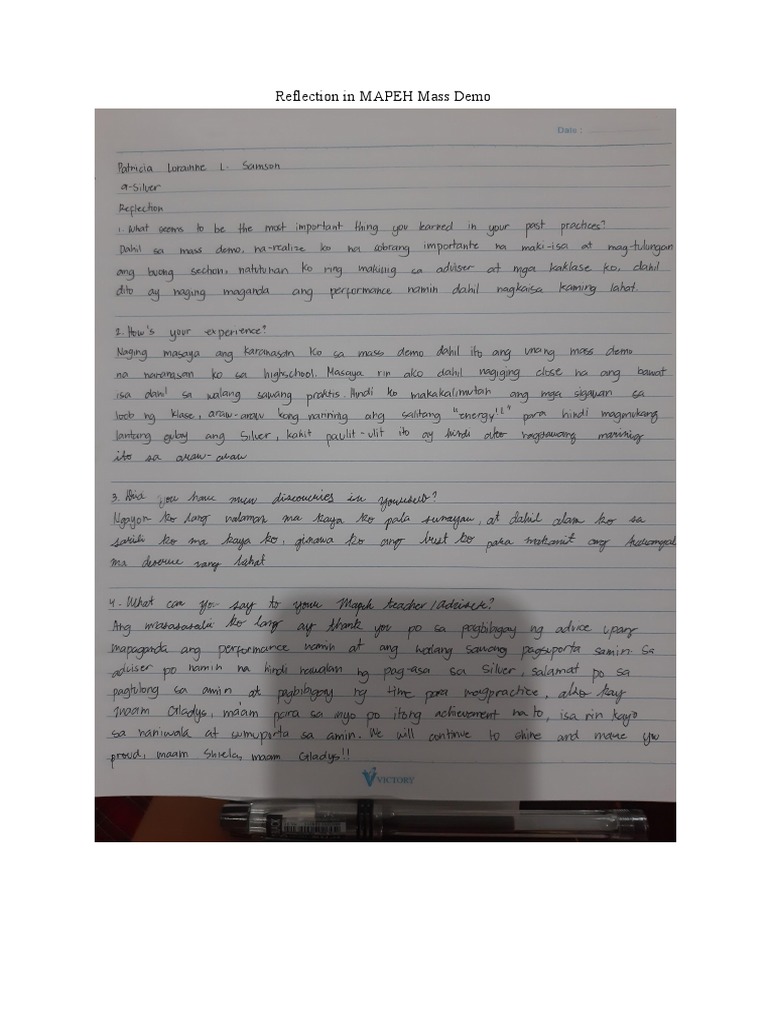 Reflection in MAPEH Mass Demo
Date :
Patricia Lorainne L. Samson
9-Silver
Reflection
1. What seems to be the most important thing you learned in your past practices?
Dahil sa mass demo, na-realize ko na sobrang importante na maki-isa at mag-tulungan
ang buong section, natutunan ko ring makinig sa adviser at mga kaklase ko, dahil
dito ay naging maganda ang performance namin dahil nagkaisa kaming lahat.
2. How's your experience?
Naging masaya ang karanasan ko sa mass demo dahil ito ang unang mass demo
na naranasan ko sa highschool. Masaya rin ako dahil nagiging close na ang bawat
isa dahil sa walang sawang praktis. Hindi ko makakalimutan ang mga sigawan sa
loob ng klase, araw-araw kong naririning ang salitang "energy!!" para hindi magmukang
lantang gulay ang Silver, kahit paulit-ulit ito ay hindi ako nagsawang marinig
ito sa araw-araw
3. Did you have new discoveries in yourself?
Ngayon ko lang nalaman na kaya ko pala sumayaw, at dahil alam ko sa
sarili ko na kaya ko, ginawa ko ang best ko para makamit ang
na deserve lahat
4. What can you say to your Mapeh teacher/adviser?
Ang masasasabi ko lang ay thank you po sa pagbibigay ng advice upang
mapaganda ang performance namin at ang walang sawang pagsuporta samin. Sa
adviser po namin na hindi nawalan ng pag-asa sa Silver, salamat po sa
pagtulong sa amin at pagbibigay ng time para magpractice, also kay
maam Gladys, ma'am para sa inyo po itong achievement na to, isa rin kayo
sa naniwala at sumuporta sa amin. We will continue to shine and make you
proud, maam Shiela, maam Gladys!!
VICTORY